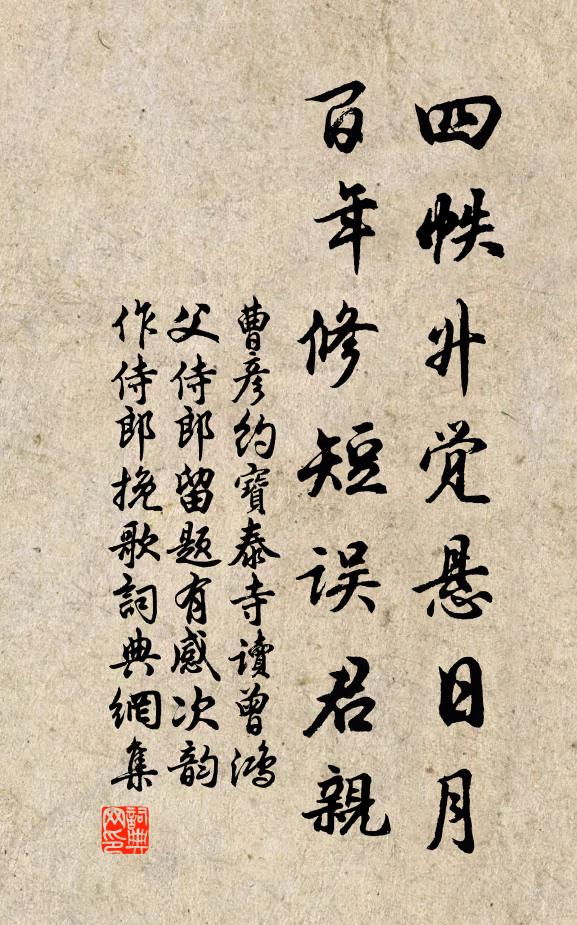 四帙升觉悬日月
百年修短误君親
曹彦约寶泰寺讀曾鴻
父侍郎留题有感次韵
作侍郎挽歌詞典網集
詞典网印